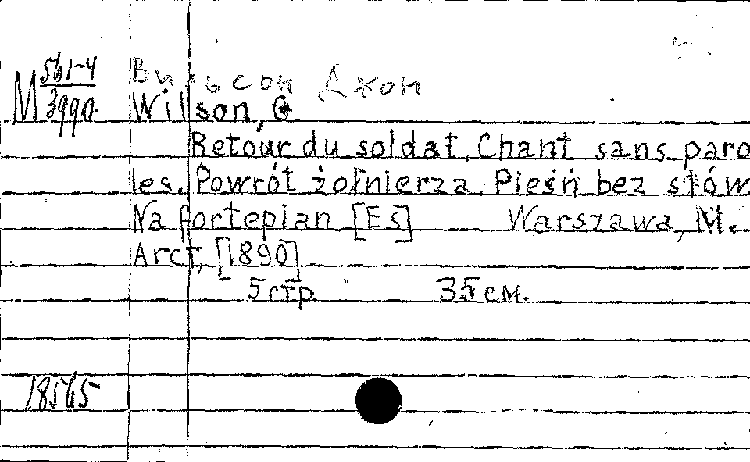 M 561-4
3990.
Вильсон Джон
Wilson, G
Retour du soldat. Chant sans paro
les. Powrót żołnierza. Pieśń bez słów
Na fortepian [Es] Warszawa, M.
Arct, [1890]
5 стр. 35 см.
18565